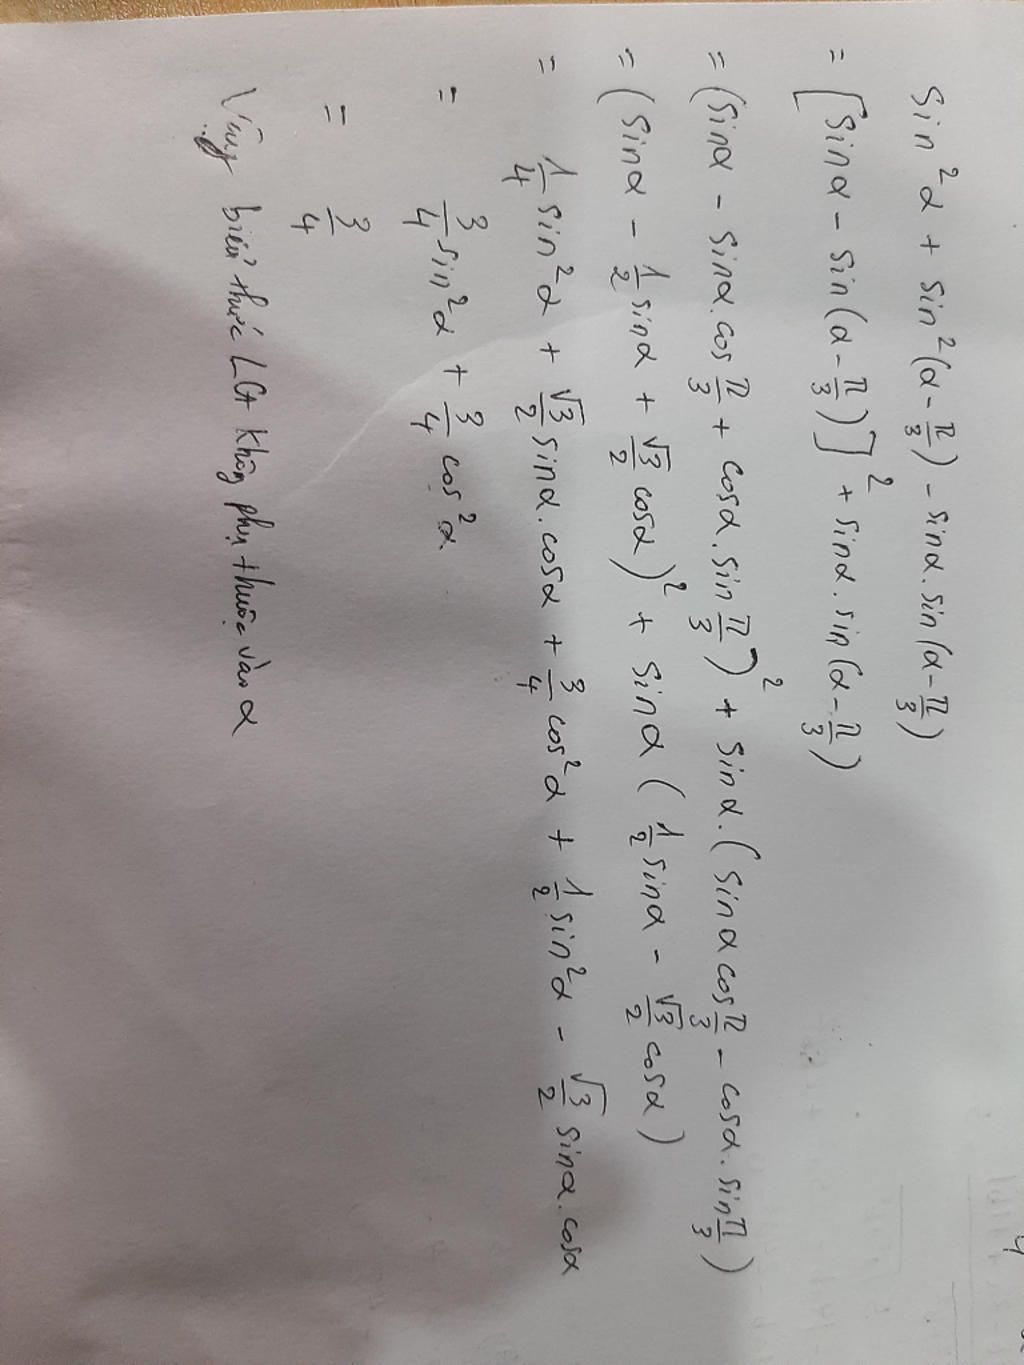 sin²α + sin²(α - π/3) - sinα.sin(α - π/3)
= [sinα - sin(α - π/3)]² + sinα.sin(α - π/3)
= (sinα - sinα.cos π/3 + cosα.sin π/3)² + sinα.(sinα cos π/3 - cosα.sin π/3)
= (sinα - 1/2 sinα + √3/2 cosα)² + sinα(1/2 sinα - √3/2 cosα)
= 1/4 sin²α + √3/2 sinα.cosα + 3/4 cos²α + 1/2 sin²α - √3/2 sinα.cosα
= 3/4 sin²α + 3/4 cos²α
= 3/4
Vậy biểu thức LG không phụ thuộc vào α